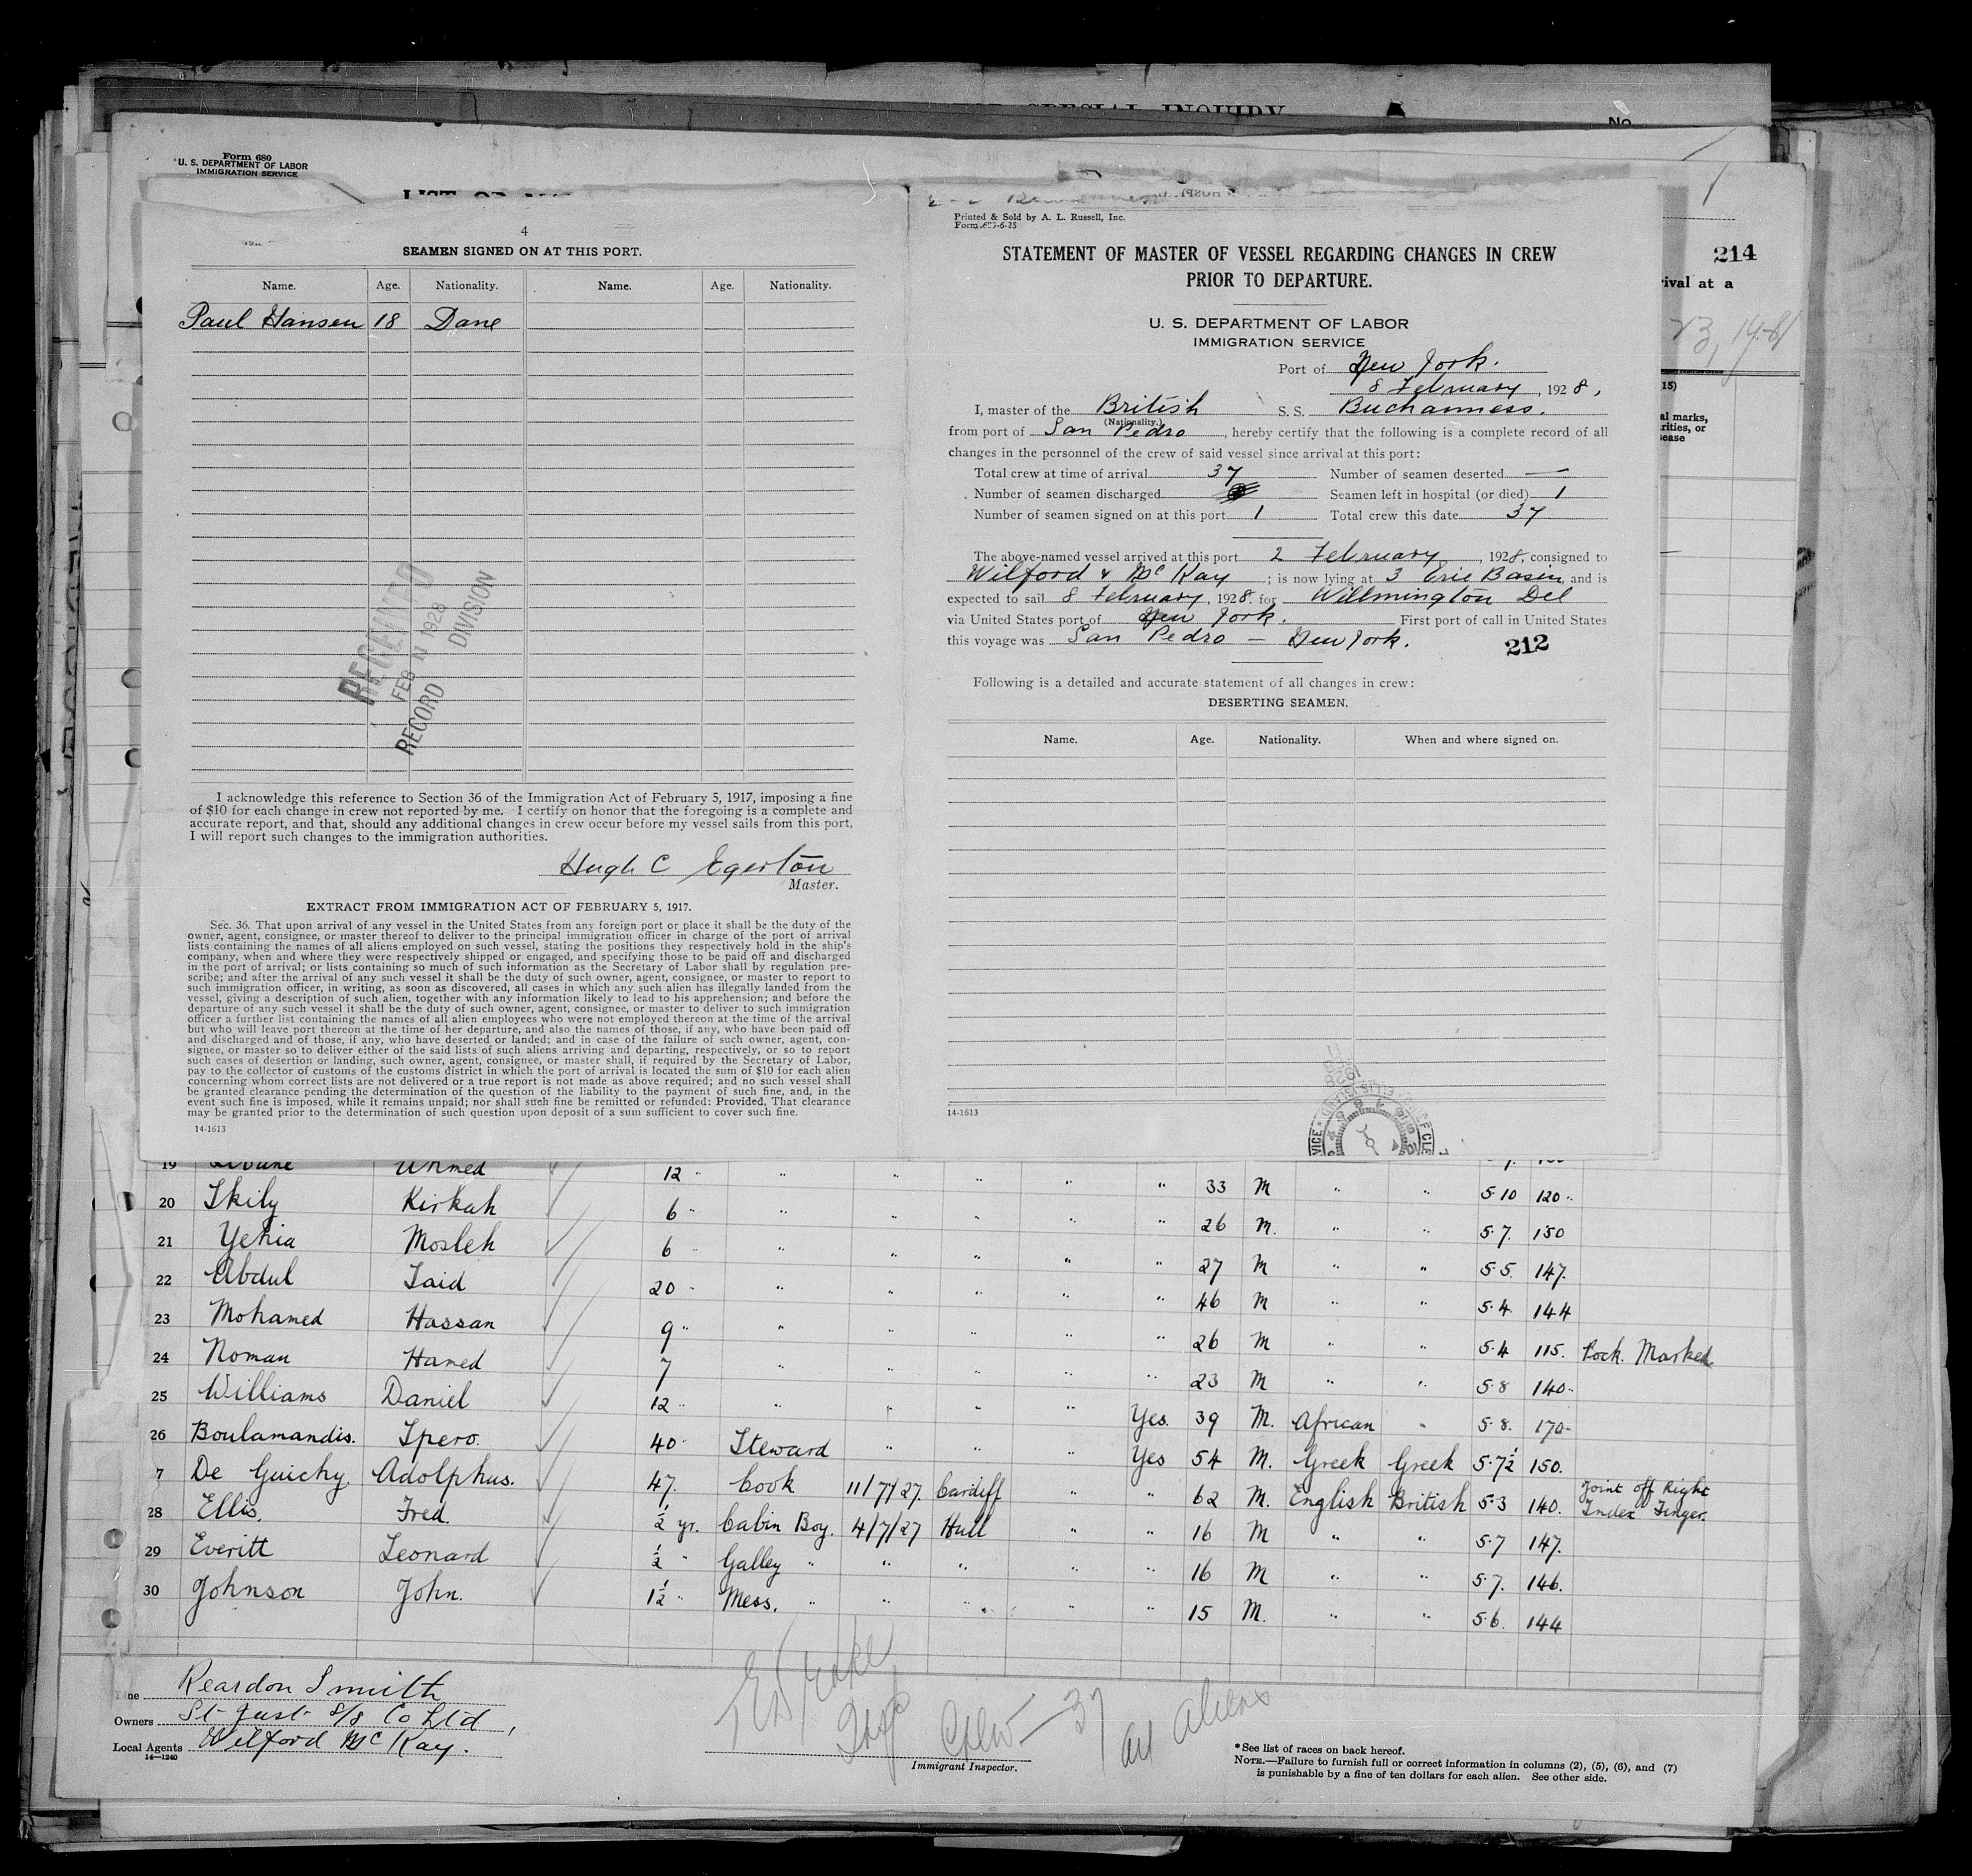 SPECIAL INQUIRY
No.
Form 680
U. S. DEPARTMENT OF LABOR
IMMIGRATION SERVICE
214
rival at a
15)
al marks,
rities, or
sease
4
SEAMEN SIGNED ON AT THIS PORT.
Name. Age. Nationality. Name. Age. Nationality.
Paul Hansen 18 Dane
RECEIVED
FEB 11 1928
RECORD DIVISION
I acknowledge this reference to Section 36 of the Immigration Act of February 5, 1917, imposing a fine
of $10 for each change in crew not reported by me. I certify on honor that the foregoing is a complete and
accurate report, and that, should any additional changes in crew occur before my vessel sails from this port,
I will report such changes to the immigration authorities.
Hugh C Egerton
Master.
EXTRACT FROM IMMIGRATION ACT OF FEBRUARY 5, 1917.
Sec. 36. That upon arrival of any vessel in the United States from any foreign port or place it shall be the duty of the
owner, agent, consignee, or master thereof to deliver to the principal immigration officer in charge of the port of arrival
lists containing the names of all aliens employed on such vessel, stating the positions they respectively hold in the ship's
company, when and where they were respectively shipped or engaged, and specifying those to be paid off and discharged
in the port of arrival; or lists containing so much of such information as the Secretary of Labor shall by regulation pre-
scribe; and after the arrival of any such vessel it shall be the duty of such owner, agent, consignee, or master to report to
such immigration officer, in writing, as soon as discovered, all cases in which any such alien has illegally landed from the
vessel, giving a description of such alien, together with any information likely to lead to his apprehension; and before the
departure of any such vessel it shall be the duty of such owner, agent, consignee, or master to deliver to such immigration
officer a further list containing the names of all alien employees who were not employed thereon at the time of the arrival
but who will leave port thereon at the time of her departure, and also the names of those, if any, who have been paid off
and discharged and of those, if any, who have deserted or landed; and in case of the failure of such owner, agent, con-
signee, or master so to deliver either of the said lists of such aliens arriving and departing, respectively, or so to report
such cases of desertion or landing, such owner, agent, consignee, or master shall, if required by the Secretary of Labor,
pay to the collector of customs of the customs district in which the port of arrival is located the sum of $10 for each alien
concerning whom correct lists are not delivered or a true report is not made as above required; and no such vessel shall
be granted clearance pending the determination of the question of the liability to the payment of such fine, and, in the
event such fine is imposed, while it remains unpaid; nor shall such fine be remitted or refunded: Provided, That clearance
may be granted prior to the determination of such question upon deposit of a sum sufficient to cover such fine.
14-1613
Printed & Sold by A. L. Russell, Inc.
STATEMENT OF MASTER OF VESSEL REGARDING CHANGES IN CREW
PRIOR TO DEPARTURE.
U. S. DEPARTMENT OF LABOR
IMMIGRATION SERVICE
Port of New York.
8 February, 1928,
I, master of the British S. S. Buchanness.
(Nationality.)
from port of San Pedro, hereby certify that the following is a complete record of all
changes in the personnel of the crew of said vessel since arrival at this port:
Total crew at time of arrival 37 Number of seamen deserted —
Number of seamen discharged Seamen left in hospital (or died) 1
Number of seamen signed on at this port 1 Total crew this date 37
The above-named vessel arrived at this port 2 February, 1928, consigned to
Wilford & McKay; is now lying at 3 Erie Basin, and is
expected to sail 8 February, 1928. for Willmington Del
via United States port of New York. First port of call in United States
this voyage was San Pedro — New York.
212
Following is a detailed and accurate statement of all changes in crew:
DESERTING SEAMEN.
Name. Age. Nationality. When and where signed on.
14-1613
19 Ahmed 12 " " " " " " 33 M " " 5·10 120"
20 Skily Kirkah 6 " " " " " " 26 M. " " 5·7. 150
21 Yehia Mosleh 6 " " " " " " 27 M " " 5·5. 147.
22 Abdul Said 20 " " " " " " 46 M " " 5·4 144
23 Mohamed Hassan 9 " " " " " " 26 M " " 5·4 115. Pock. Marked
24 Noman Hamed 7 " " " " " 23 M " " 5·8 140"
25 Williams Daniel 12 " " " " " Yes. 39 M. African " 5·8. 170-
26 Boulamandis. Spero. 40 " Steward " " " Yes 54 M. Greek Greek 5·7½ 150.
7 De Guichy. Adolphus. 47. Cook 11/7/27. Cardiff " " 62 M. English British 5·3 140. Joint off Right Index Finger.
28 Ellis. Fred. ½ yr. Cabin Boy. 4/7/27 Hull " " 16 M " " 5·7 147.
29 Everitt Leonard ½ " Galley " " " " " 16 M " " 5·7. 146.
30 Johnson John. 1½ " Mess. " " " " " 15 M. " " 5·6. 144
Reardon Smith
Owners St Just S/S Co Ltd,
Local Agents Wilford McKay.
14—1240
Crew — 37 all aliens
Immigrant Inspector.
*See list of races on back hereof.
NOTE.—Failure to furnish full or correct information in columns (2), (5), (6), and (7)
is punishable by a fine of ten dollars for each alien. See other side.